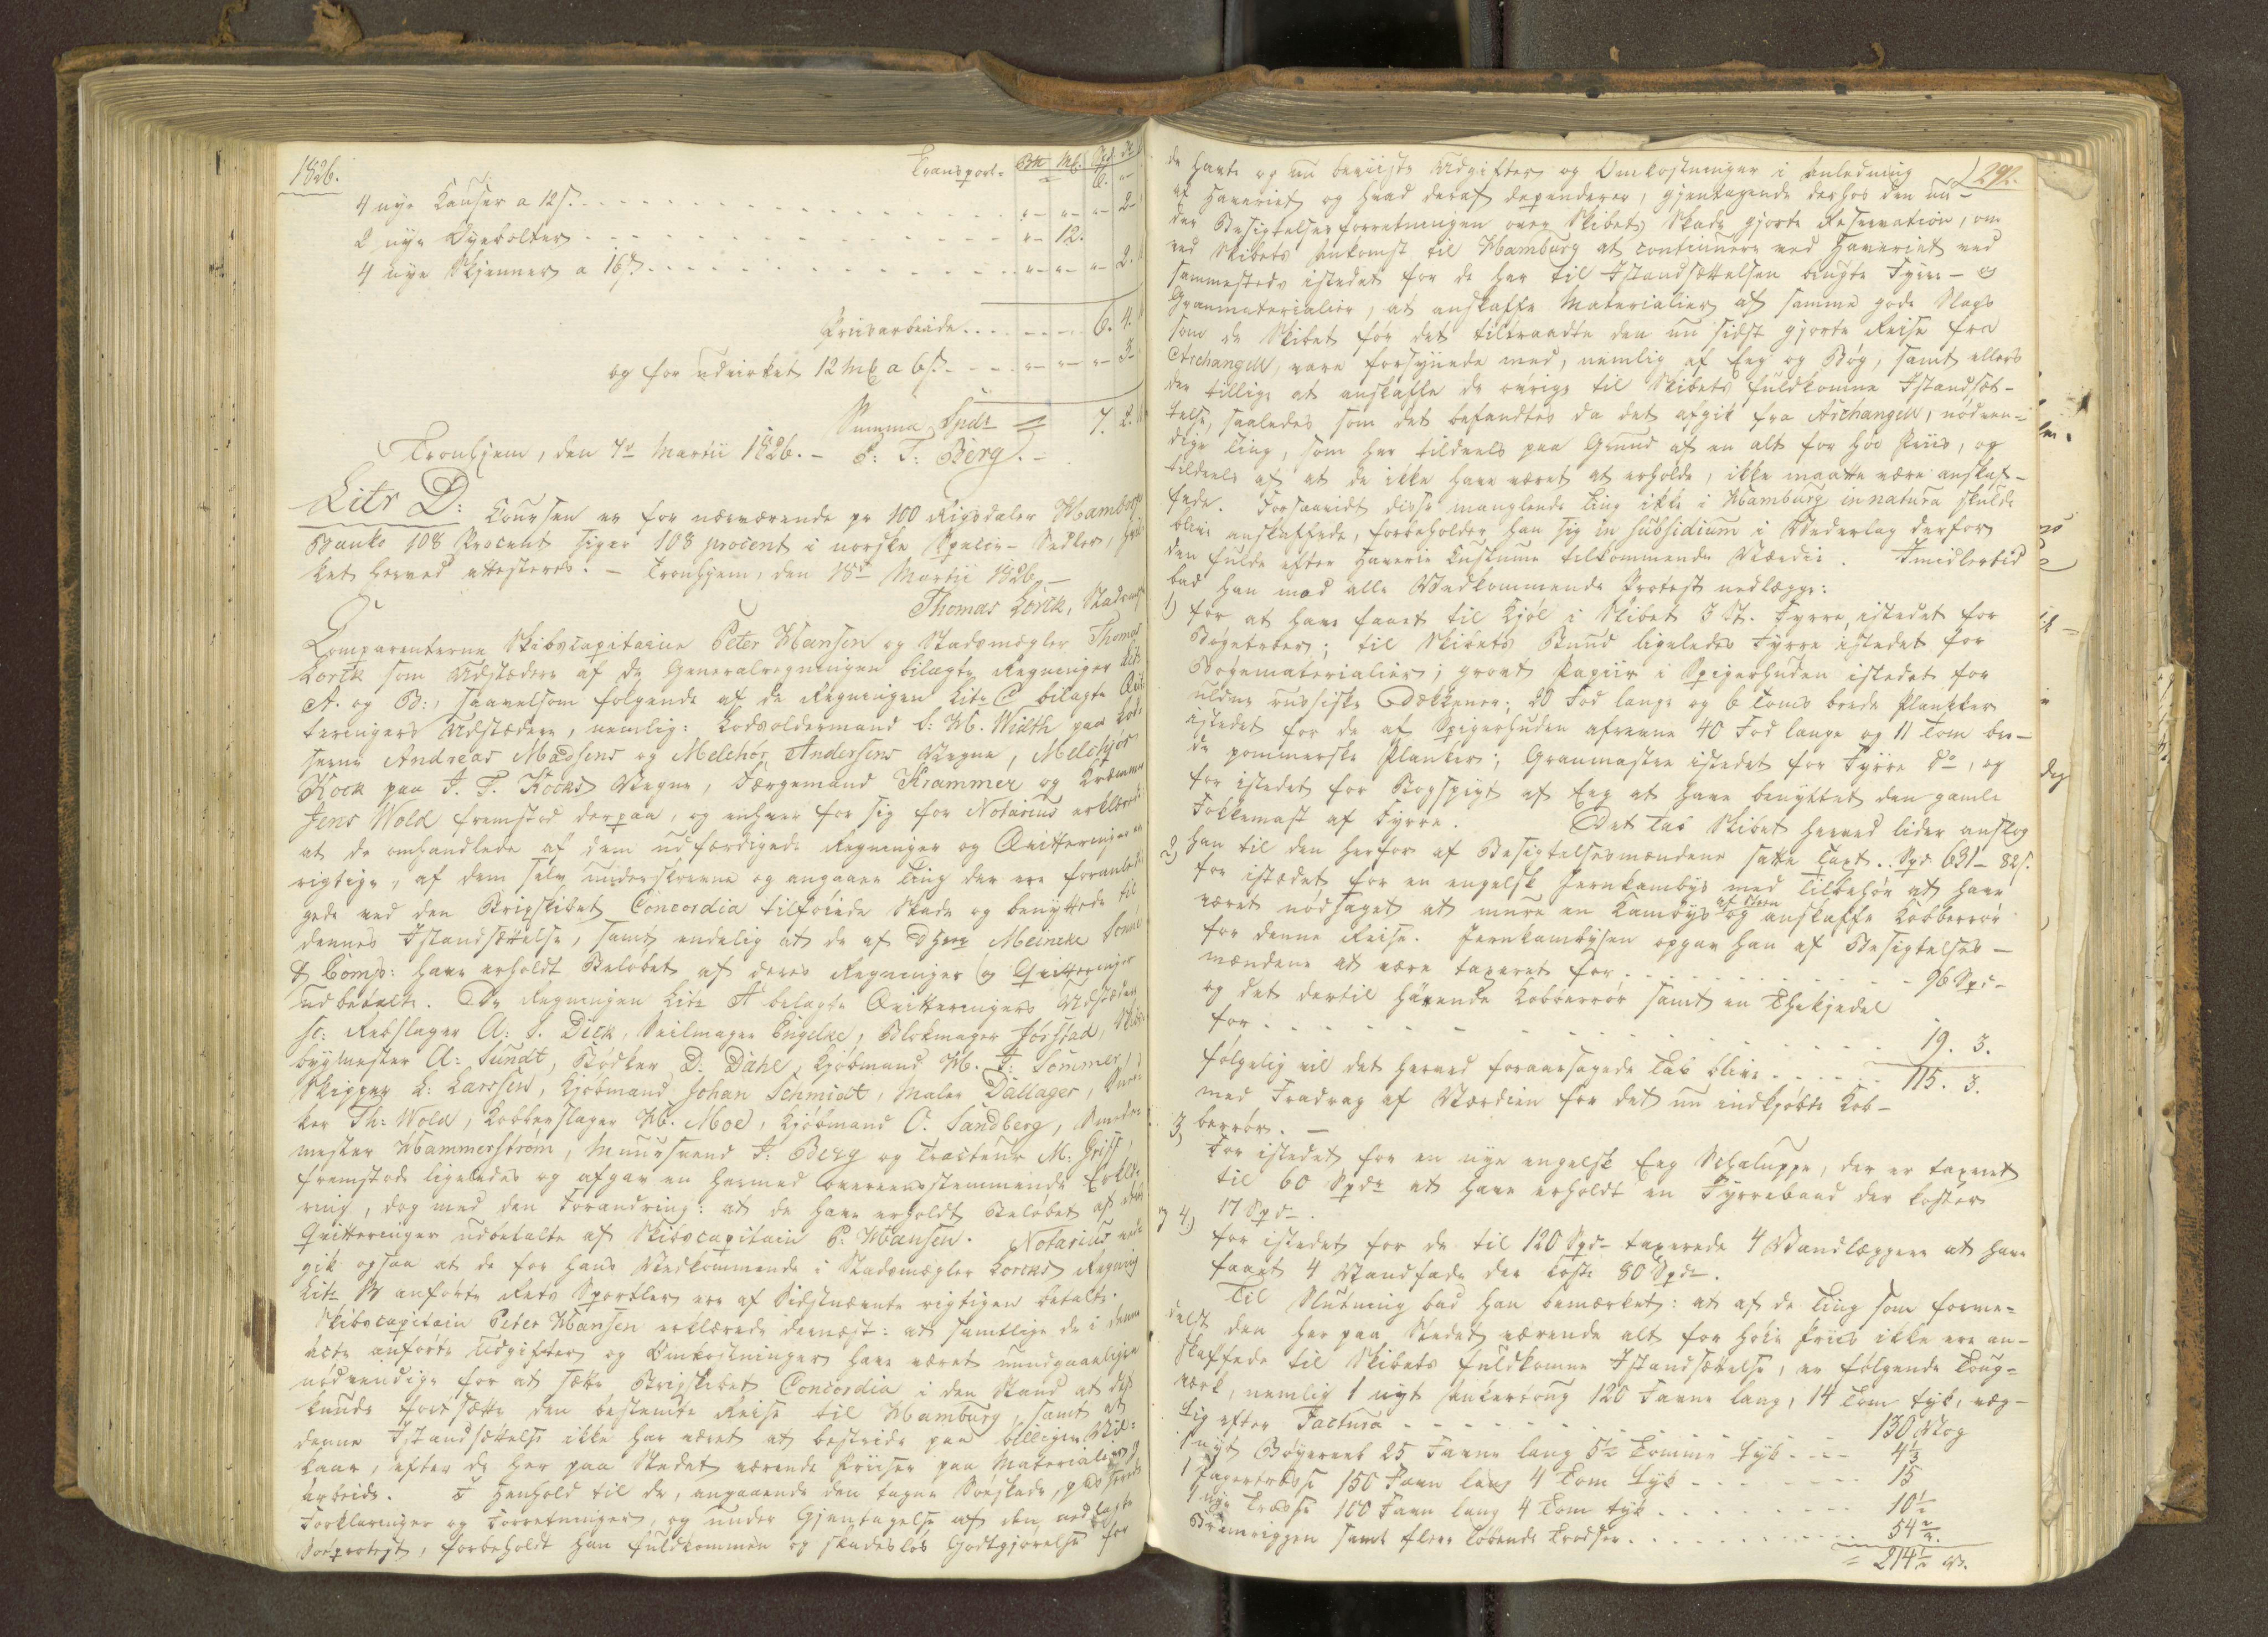 1826.
Transport = BM Mk. Spd. Sk
6. "-
4 nye Kauser a 12 s. "- "- "- 2-
2 nye Øyebolter "- 12.
4 nye Skjenner a 16 s "- "- "- 2.
Priisarbeide 6. 4.
og for udvirket 12 Mk a 6 s. "- "- "- 3-
Summa Spdr = 7. 2.
Tronhjem, den 7de Martii 1826. - P: T: Berg. -
Litr D: Coursen er for nærværende pr 100 Rigsdaler Hamborger
Banko 108 Procent siger 108 procent i norske Specie-Sedler, hvil-
ket herved attesteres. - Tronhjem, den 18de Martii 1826. -
Thomas Lorck, Stadsmægler
Comparenterne Skibscapitaine Peter Hansen og Stadsmægler Thomas
Lorck som Udstædere af de Generalregningen bilagte Regninger Litr
A. og B:, saavelsom følgende af de Regningen Litr C bilagte Qvit-
teringers Udstædere, nemlig: Lodsoldermand C: W. Width paa Lod-
serne Andreas Madsens og Melchor Andersens Vegne, Melchjor
Kock paa J. T. Kocks Vegne, Færgemand Krammer og Kræmmer
Jens Wold fremstod derpaa, og enhver for sig for Notarius erklærede
at de omhandlede af dem udfærdigede Regninger og Qvitteringer ere
rigtige, af dem selv underskrevne og angaaer Ting der ere foranledi-
gede ved den Brigskibet Concordia tilføiede Skade og benyttede til
dennes Istandsættelse, samt endelig at de af DHerr Meincke Sonne
& Comp: have erholdt Beløbet af deres Regninger og Qvitteringer
udbetalt. De Regningen Litr A belagte Qvitteringers Udstædere
sc: Rebslager A: S. Dick, Seilmager Engelke, Blokmager Jørstad, Skibs-
bygmester A: Sundt, Bødker D. Dahl, Kjøbmand H. F: Sommer,
Skipper L: Larssen, Kjøbmand Johan Schmidt, Maler Dallager, Sned-
ker Th: Wold, Kobberslager H. Moe, Kjøbmand O. Sandberg, Smede-
mester Hammerstrøm, Muursvend J: Berg og Tracteur M: Griss,
fremstode ligeledes og afgav en hermed overeensstemmende Erklæ-
ring, dog med den Forandring: at de have erholdt Beløbet af
Qvitteringer udbetalte af Skibscapitain P: Hansen. Notarius
gik ogsaa at de for hans Vedkommende i Stadsmægler Lorcks Regning
Litr B anførte Rets Sportler ere af Sidstnævnte rigtigen betalte.
Skibscapitain Peter Hansen erklærede dernæst: at samtlige de i denne
Acte anførte Udgifter og Omkostninger have været uundgaaeligen
nødvendige for at sætte Brigskibet Concordia i den Stand at det
kunde fortsætte den bestemte Reise til Hamburg, samt at
denne Istandsættelse ikke har været at bestride paa billigere Vil-
kaar, efter de her paa Stedet værende Priser paa Materialier og
Arbeide. I Henhold til de, angaaende den tagne Søeskade, passerede
Forklaringer og Forretninger, og under Gjentagelse af den nedlagte
Søeprotest, forbeholdt han fuldkommen og skadesløs Godtgjørelse for
292.
de havte og nu beviiste Udgifter og Omkostninger i Anledning
af Haveriet og hvad deraf dependerer, gjentagende derhos den un-
der Besigtelsesforretningen over Skibets Skade gjorte Reservation, om
ved Skibets Ankomst til Hamburg at continuere ved Haveriet ved
sammesteds istedet for de her til Istandsættelsen brugte Fyrre- og
Granmaterialier, at anskaffe Materialier af samme gode Slags
som de Skibet før det tiltraadte den nu sidst gjorte Reise fra
Archangell, vare forsynede med, nemlig af Eeg og Bøg, samt ellers
der tillige at anskaffe de øvrige til Skibets fuldkomne Istandsæt-
telse, saaledes som det befandtes da det afgik fra Archangell, nødven-
dige Ting, som her tildeels paa Grund af en alt for høi Priis, og
tildeels af at de ikke have været at erholde, ikke maatte være anskaf-
fede. Forsaavidt disse manglende Ting ikke i Hamburg in natura skulde
blive anskaffede, forbeholder han sig in subsidium i Vederlag derfor
den fulde efter Haverie Custume tilkommende Værdie. Imidlertid
bad han mod alle Vedkommende Protest nedlagt:
1) for at have faaet til Kjøl i Skibet 3 St. Fyrre, istedet for
Bøgetræer; til Skibets Bund ligeledes Fyrre istedet for
Bøgematerialier; groot Papiir i Spigerhuden istedet for
uldne russiske Dækkener; 20 Fod lange og 6 Toms brede Planker
istedet for de af Spigerhuden afrevne 40 Fod lange og 11 Tom bre-
de pommerske Planker; Granmaster istedet for Fyrre do, og
for istedet for Bogspryt af Eeg at have benyttet den gamle
Fokkemast af Fyrre. Det Tab Skibet herved lider anslog
han til den herfor af Besigtelsesmændene satte Taxt. Spd 631 - 82 s.
2) for istædet for en engelsk Jernkambys med Tilbehør at have
været nødsaget at mure en Kambys af Steen og anskaffe Kobberrør
for denne Reise. Jernkambysen opgav han af Besigtelses-
mændene at være taxeret for 96 Spd-
og det dertil hørende Kobberrør samt en Theekjedel
for 19. 3.
følgelig vil det herved foraarsagede Tab blive 115. 3.
med Fradrag af Værdien for det nu indkjøbte Kob-
berrør. -
3) For istedet for en nye engelsk Eeg Schaluppe, der er taxeret
til 60 Spdr at have erholdt en Fyrrebaad der koster
17 Spd-.
4) for istedet for de til 120 Spd- taxerede 4 Vandlæggere at have
faaet 4 Vandfade der koste 80 Spdr.
Til Slutning bad han bemærket: at af de Ting som forme-
delst den her paa Stedet værende alt for høie Priis ikke ere an-
skaffede til Skibets fuldkomne Istandsættelse, er følgende Toug-
værk, nemlig 1 nyt Ankertoug 120 Favne lang, 14 Tom tyk, væg-
tig efter Factura 130 Vog
1 nyt Bøyereeb 25 Favne lang 5½ Tomme tyk 4⅓
1 Pagertrosse 150 Favn lang 4 Tom tyk 15
1 nye Trosse 100 Favn lang 4 Tom tyk 10½
Bramriggen samt flere løbende Trodser 54⅔.
= 214½ V.